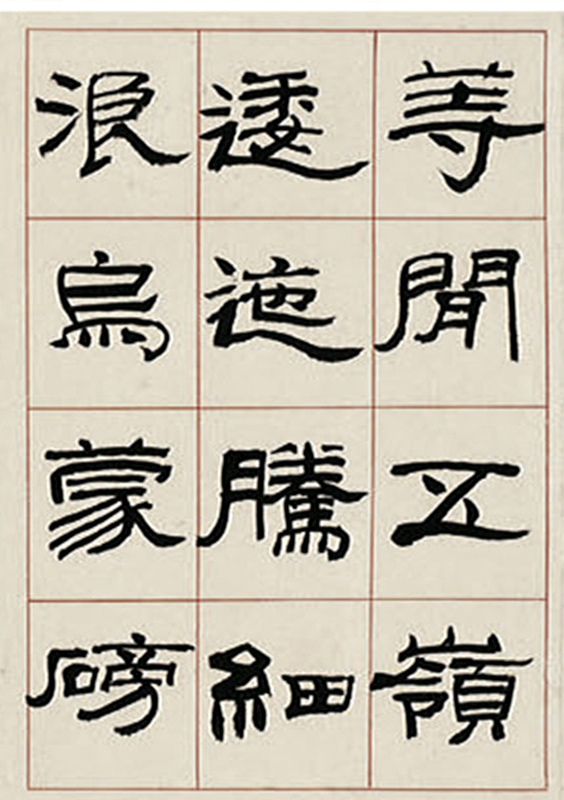 等閒五嶺
逶迤騰細
浪烏蒙磅